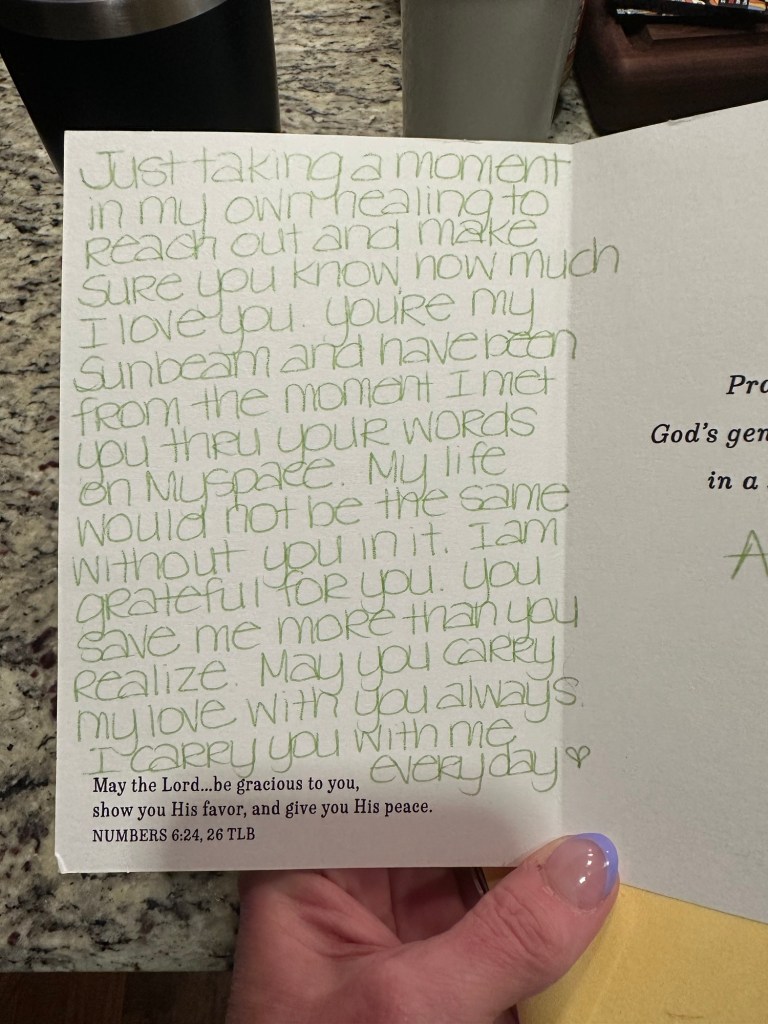 Just taking a moment
in my own healing to
reach out and make
sure you know how much
I love you. you're my
sunbeam and have been
from the moment I met
you thru your words
on Myspace. My life
would not be the same
without you in it. I am
grateful for you. you
save me more than you
realize. May you carry
my love with you always.
I carry you with me
everyday ♡
May the Lord...be gracious to you,
show you His favor, and give you His peace.
NUMBERS 6:24, 26 TLB
God's
in a